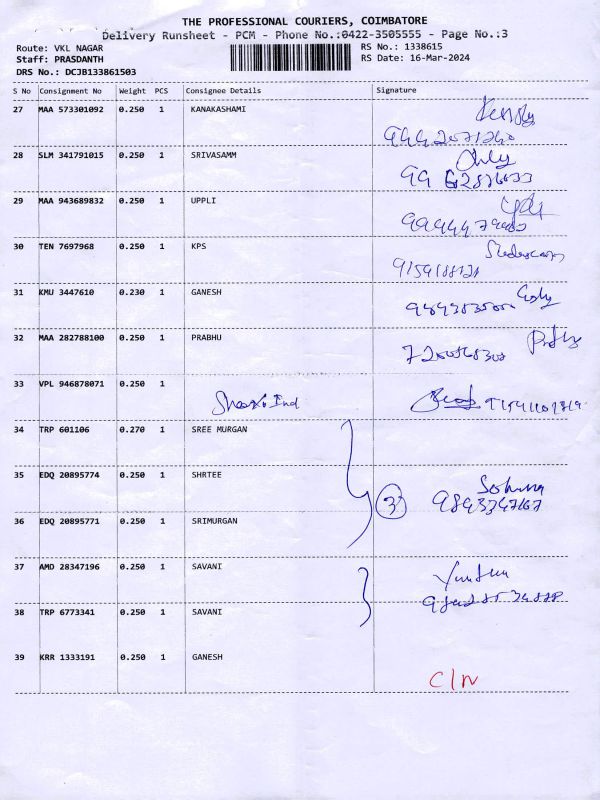 THE PROFESSIONAL COURIERS, COIMBATORE
Delivery Runsheet - PCM - Phone No.:0422-3505555 - Page No.:3
Route: VKL NAGAR RS No.: 1338615
Staff: PRASDANTH RS Date: 16-Mar-2024
DRS No.: DCJB133861503
S No Consignment No Weight PCS Consignee Details Signature
27 MAA 573301092 0.250 1 KANAKASHAMI
28 SLM 341791015 0.250 1 SRIVASAMM
29 MAA 943689832 0.250 1 UPPLI
30 TEN 7697968 0.250 1 KPS
31 KMU 3447610 0.230 1 GANESH
32 MAA 282788100 0.250 1 PRABHU
33 VPL 946878071 0.250 1
34 TRP 601106 0.270 1 SREE MURGAN
35 EDQ 20895774 0.250 1 SHRTEE
3
36 EDQ 20895771 0.250 1 SRIMURGAN
37 AMD 28347196 0.250 1 SAVANI
38 TRP 6773341 0.250 1 SAVANI
39 KRR 1333191 0.250 1 GANESH
C/N